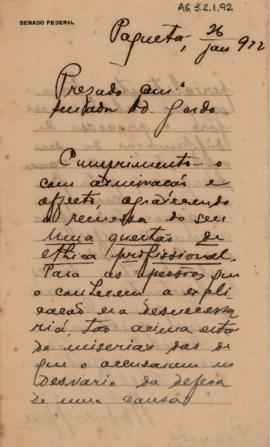 A6.3.2.1.92
SENADO FEDERAL
Paquetá, 26
Jan 912
Prezado amº
Senador Ad. Gordo
Cumprimento-o
com admiração e
affecto, agradecendo
a remessa do seu
Uma questão de
ethica profissional.
Para as pessôas que
o conhecem a expli-
cação era desnecessa-
ria, tão acima está
de miserias das de
que o accusaram no
desvario da defesa
de uma causa